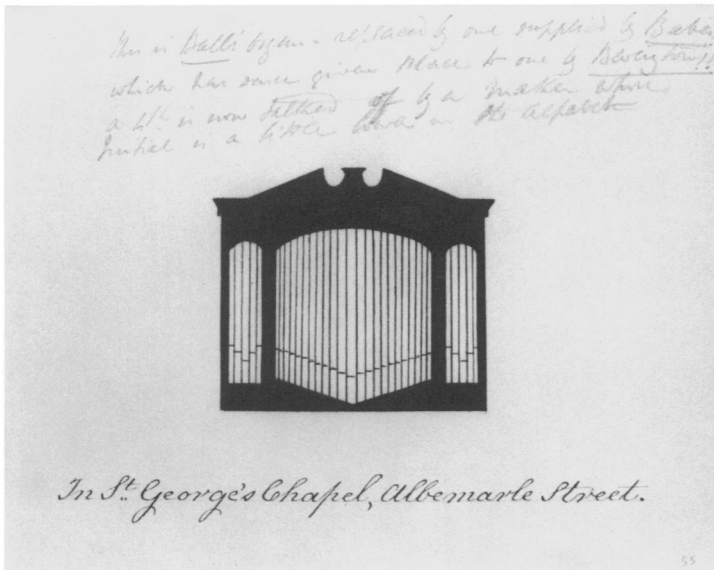 This is Ball's organ - replaced by one supplied by
which has since given place to one by
a 4th is now talked of by a maker whose
Initial is a little lower in the Alfabet
In St. George's Chapel, Albemarle Street.
55